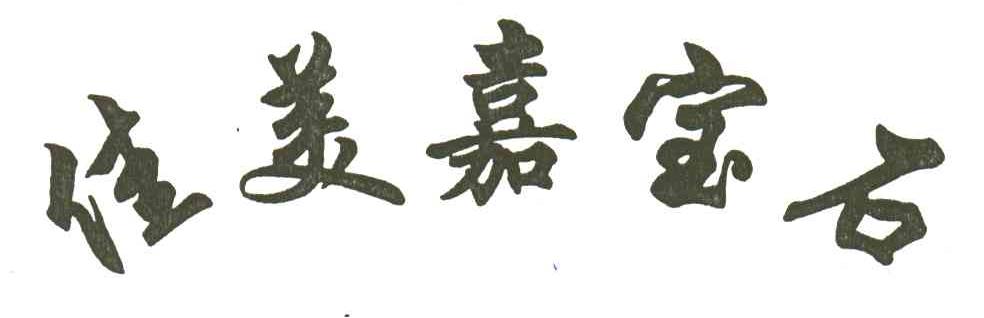 佳美嘉宝石